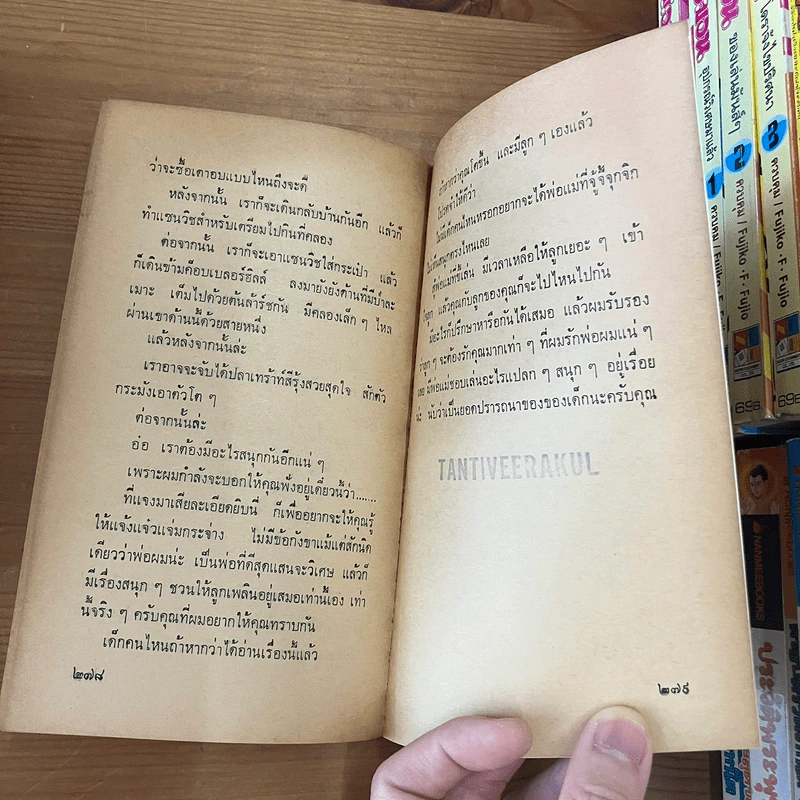 ว่าจะซื้อเตาอบแบบไหนถึงจะดี
หลังจากนั้น เราก็จะเดินกลับบ้านกันอีก แล้วก็
ทำแซนวิชสำหรับเตรียมไปกินที่คลอง
ต่อจากนั้น เราก็จะเอาแซนวิชใส่กระเป๋า แล้ว
ก็เดินข้ามค็อบเบลอร์ฮิลล์ ลงมายังยังด้านที่มีป่าละ
เมาะ เต็มไปด้วยต้นล้าร์ชกัน มีคลองเล็ก ๆ ไหล
ผ่านเขาด้านนี้ด้วยสายหนึ่ง
แล้วหลังจากนั้นล่ะ
เราอาจจะจับได้ปลาเทร้าท์สีรุ้งสวยสุดใจ สักตัว
กระมังเอาตัวโต ๆ
ต่อจากนั้นล่ะ
อ๋อ เราต้องมีอะไรสนุกกันอีกแน่ ๆ
เพราะผมกำลังจะบอกให้คุณฟังอยู่เดี๋ยวนี้ว่า.......
ที่แจงมาเสียละเอียดยิบนี่ ก็เพื่ออยากจะให้คุณรู้
ให้แจ้งแจ๋วแจ่มกระจ่าง ไม่มีข้อกังขาแม้แต่สักนิด
เดียวว่าพ่อผมน่ะ เป็นพ่อที่ดีสุดแสนจะวิเศษ แล้วก็
มีเรื่องสนุก ๆ ชวนให้ลูกเพลินอยู่เสมอเท่านี้เอง เท่า
นี้จริง ๆ ครับคุณที่ผมอยากให้คุณทราบกัน
เด็กคนไหนถ้าหากว่าได้อ่านเรื่องนี้แล้ว
๒๗๘
ถ้าหากว่าคุณโตขึ้น และมีลูก ๆ เองแล้ว
โปรดจำให้ดีว่า
ไม่มีเด็กคนไหนหรอกอยากจะได้พ่อแม่ที่จู้จี้จุกจิก
ไม่เห็นสนุกตรงไหนเลย
พ่อแม่ที่ขี้เล่น มีเวลาเหลือให้ลูกเยอะ ๆ เข้า
แล้วคุณกับลูกของคุณก็จะไปไหนไปกัน
มีอะไรก็ปรึกษาหารือกันได้เสมอ แล้วผมรับรอง
ว่าลูก ๆ จะต้องรักคุณมากเท่า ๆ ที่ผมรักพ่อผมแน่ ๆ
เลย มีพ่อแม่ชอบเล่นอะไรแปลก ๆ สนุก ๆ อยู่เรื่อย
น่ะ นับว่าเป็นยอดปรารถนาของของเด็กนะครับคุณ
TANTIVEERAKUL
๒๗๙
1 ควบคุม / Fujiko · F · Fujio
ของเล่นมันส์ๆ ๒ ควบคุม / Fujiko · F · Fujio
๓ ควบคุม / Fujiko · F · Fujio
NANMEEBOOKS